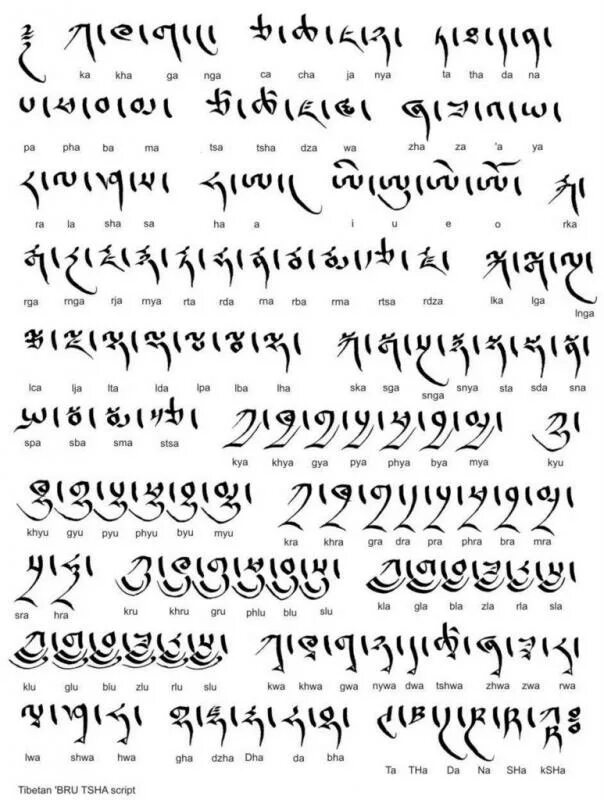 ༄ ཀ།ཁ།ག།ང། ཅ།ཆ།ཇ།ཉ། ཏ།ཐ།ད།ན།
ka kha ga nga ca cha ja nya ta tha da na
པ།ཕ།བ།མ། ཙ།ཚ།ཛ།ཝ། ཞ།ཟ།འ།ཡ།
pa pha ba ma tsa tsha dza wa zha za 'a ya
ར།ལ།ཤ།ས། ཧ།ཨ། ཨི།ཨུ།ཨེ།ཨོ། རྐ།
ra la sha sa ha a i u e o rka
རྒ།རྔ།རྗ།རྙ།རྟ།རྡ།རྣ།རྦ།རྨ།རྩ།རྫ། ལྐ།ལྒ།ལྔ།
rga rnga rja rnya rta rda rna rba rma rtsa rdza lka lga lnga
ལྕ།ལྗ།ལྟ།ལྡ།ལྤ།ལྦ།ལྷ། སྐ།སྒ།སྔ།སྙ།སྟ།སྡ།སྣ།
lca lja lta lda lpa lba lha ska sga snga snya sta sda sna
སྤ།སྦ།སྨ།སྩ། ཀྱ།ཁྱ།གྱ།པྱ།ཕྱ།བྱ།མྱ། ཀྱུ།
spa sba sma stsa kya khya gya pya phya bya mya kyu
ཁྱུ།གྱུ།པྱུ།ཕྱུ།བྱུ།མྱུ། ཀྲ།ཁྲ།གྲ།དྲ།པྲ།ཕྲ།བྲ།མྲ།
khyu gyu pyu phyu byu myu kra khra gra dra pra phra bra mra
སྲ།ཧྲ། ཀྲུ།ཁྲུ།གྲུ། ཀླ།གླ།བླ།ཟླ།རླ།སླ།
sra hra kru khru gru phlu blu slu kla gla bla zla rla sla
ཀླུ།གླུ།བླུ།ཟླུ།རླུ།སླུ། ཀྭ།ཁྭ།གྭ།ཉྭ།དྭ།ཚྭ།ཞྭ།ཟྭ།རྭ།
klu glu blu zlu rlu slu kwa khwa gwa nywa dwa tshwa zhwa zwa rwa
ལྭ།ཤྭ།ཧྭ། གྷ།ཛྷ།ཌྷ།དྷ།བྷ། ཊ།ཋ།ཌ།ཎ།ཥ།ཀྵ
lwa shwa hwa gha dzha Dha da bha Ta THa Da Na SHa kSHa
Tibetan 'BRU TSHA script